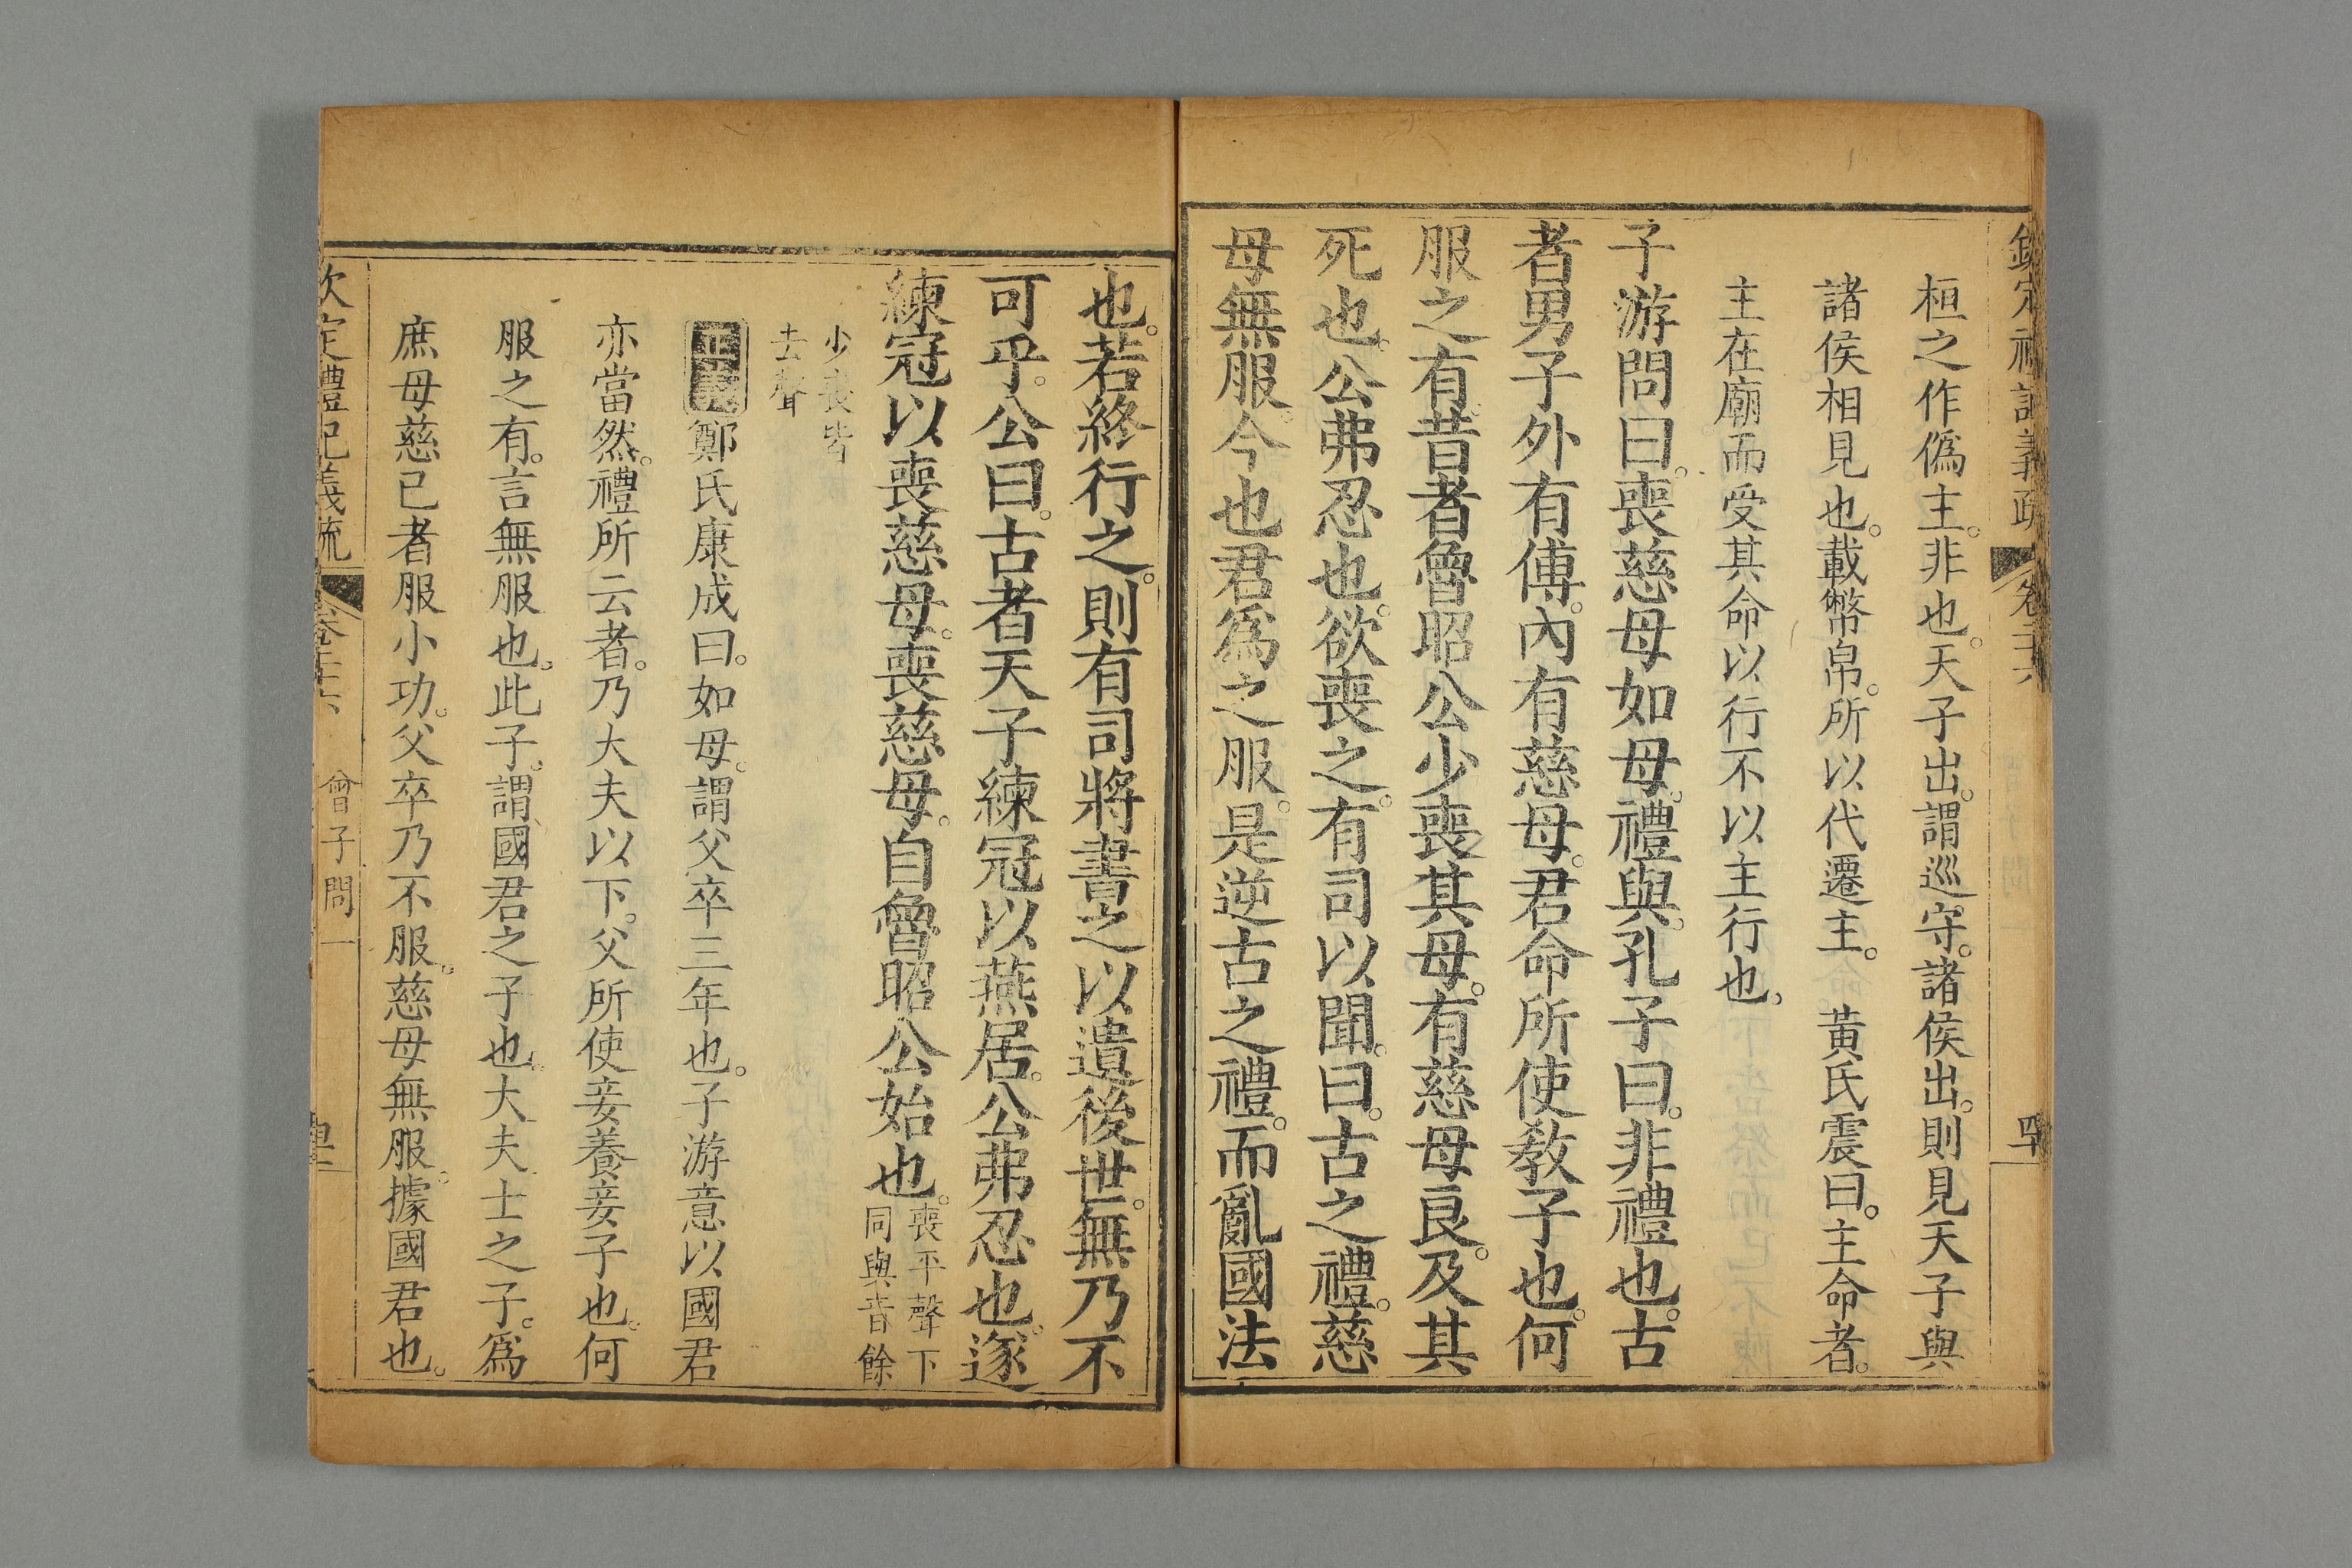 欽定禮記義疏 卷二十六
桓之作僞主。非也。天子出。謂巡守。諸侯出。則見天子與
諸侯相見也。載幣帛。所以代遷主。 黃氏震曰。主命者。
主在廟而受其命以行不以主行也。
子游問曰。喪慈母如母。禮與。孔子曰。非禮也。古
者男子外有傅。內有慈母。君命所使敎子也。何
服之有。昔者魯昭公少喪其母。有慈母良。及其
死也。公弗忍也。欲喪之。有司以聞。曰。古之禮。慈
母無服。今也君爲之服。是逆古之禮。而亂國法
也。若終行之。則有司將書之以遺後世。無乃不
可乎。公曰。古者天子練冠以燕居。公弗忍也。遂
練冠以喪慈母。喪慈母。自魯昭公始也。喪平聲下
同與音餘
少喪皆
去聲
正義鄭氏康成曰。如母。謂父卒三年也。子游意以國君
亦當然。禮所云者。乃大夫以下。父所使妾養妾子也。何
服之有。言無服也。此子。謂國君之子也。大夫士之子。爲
庶母慈己者服小功。父卒乃不服。慈母無服。據國君也。
欽定禮記義疏 卷二十六 曾子問一